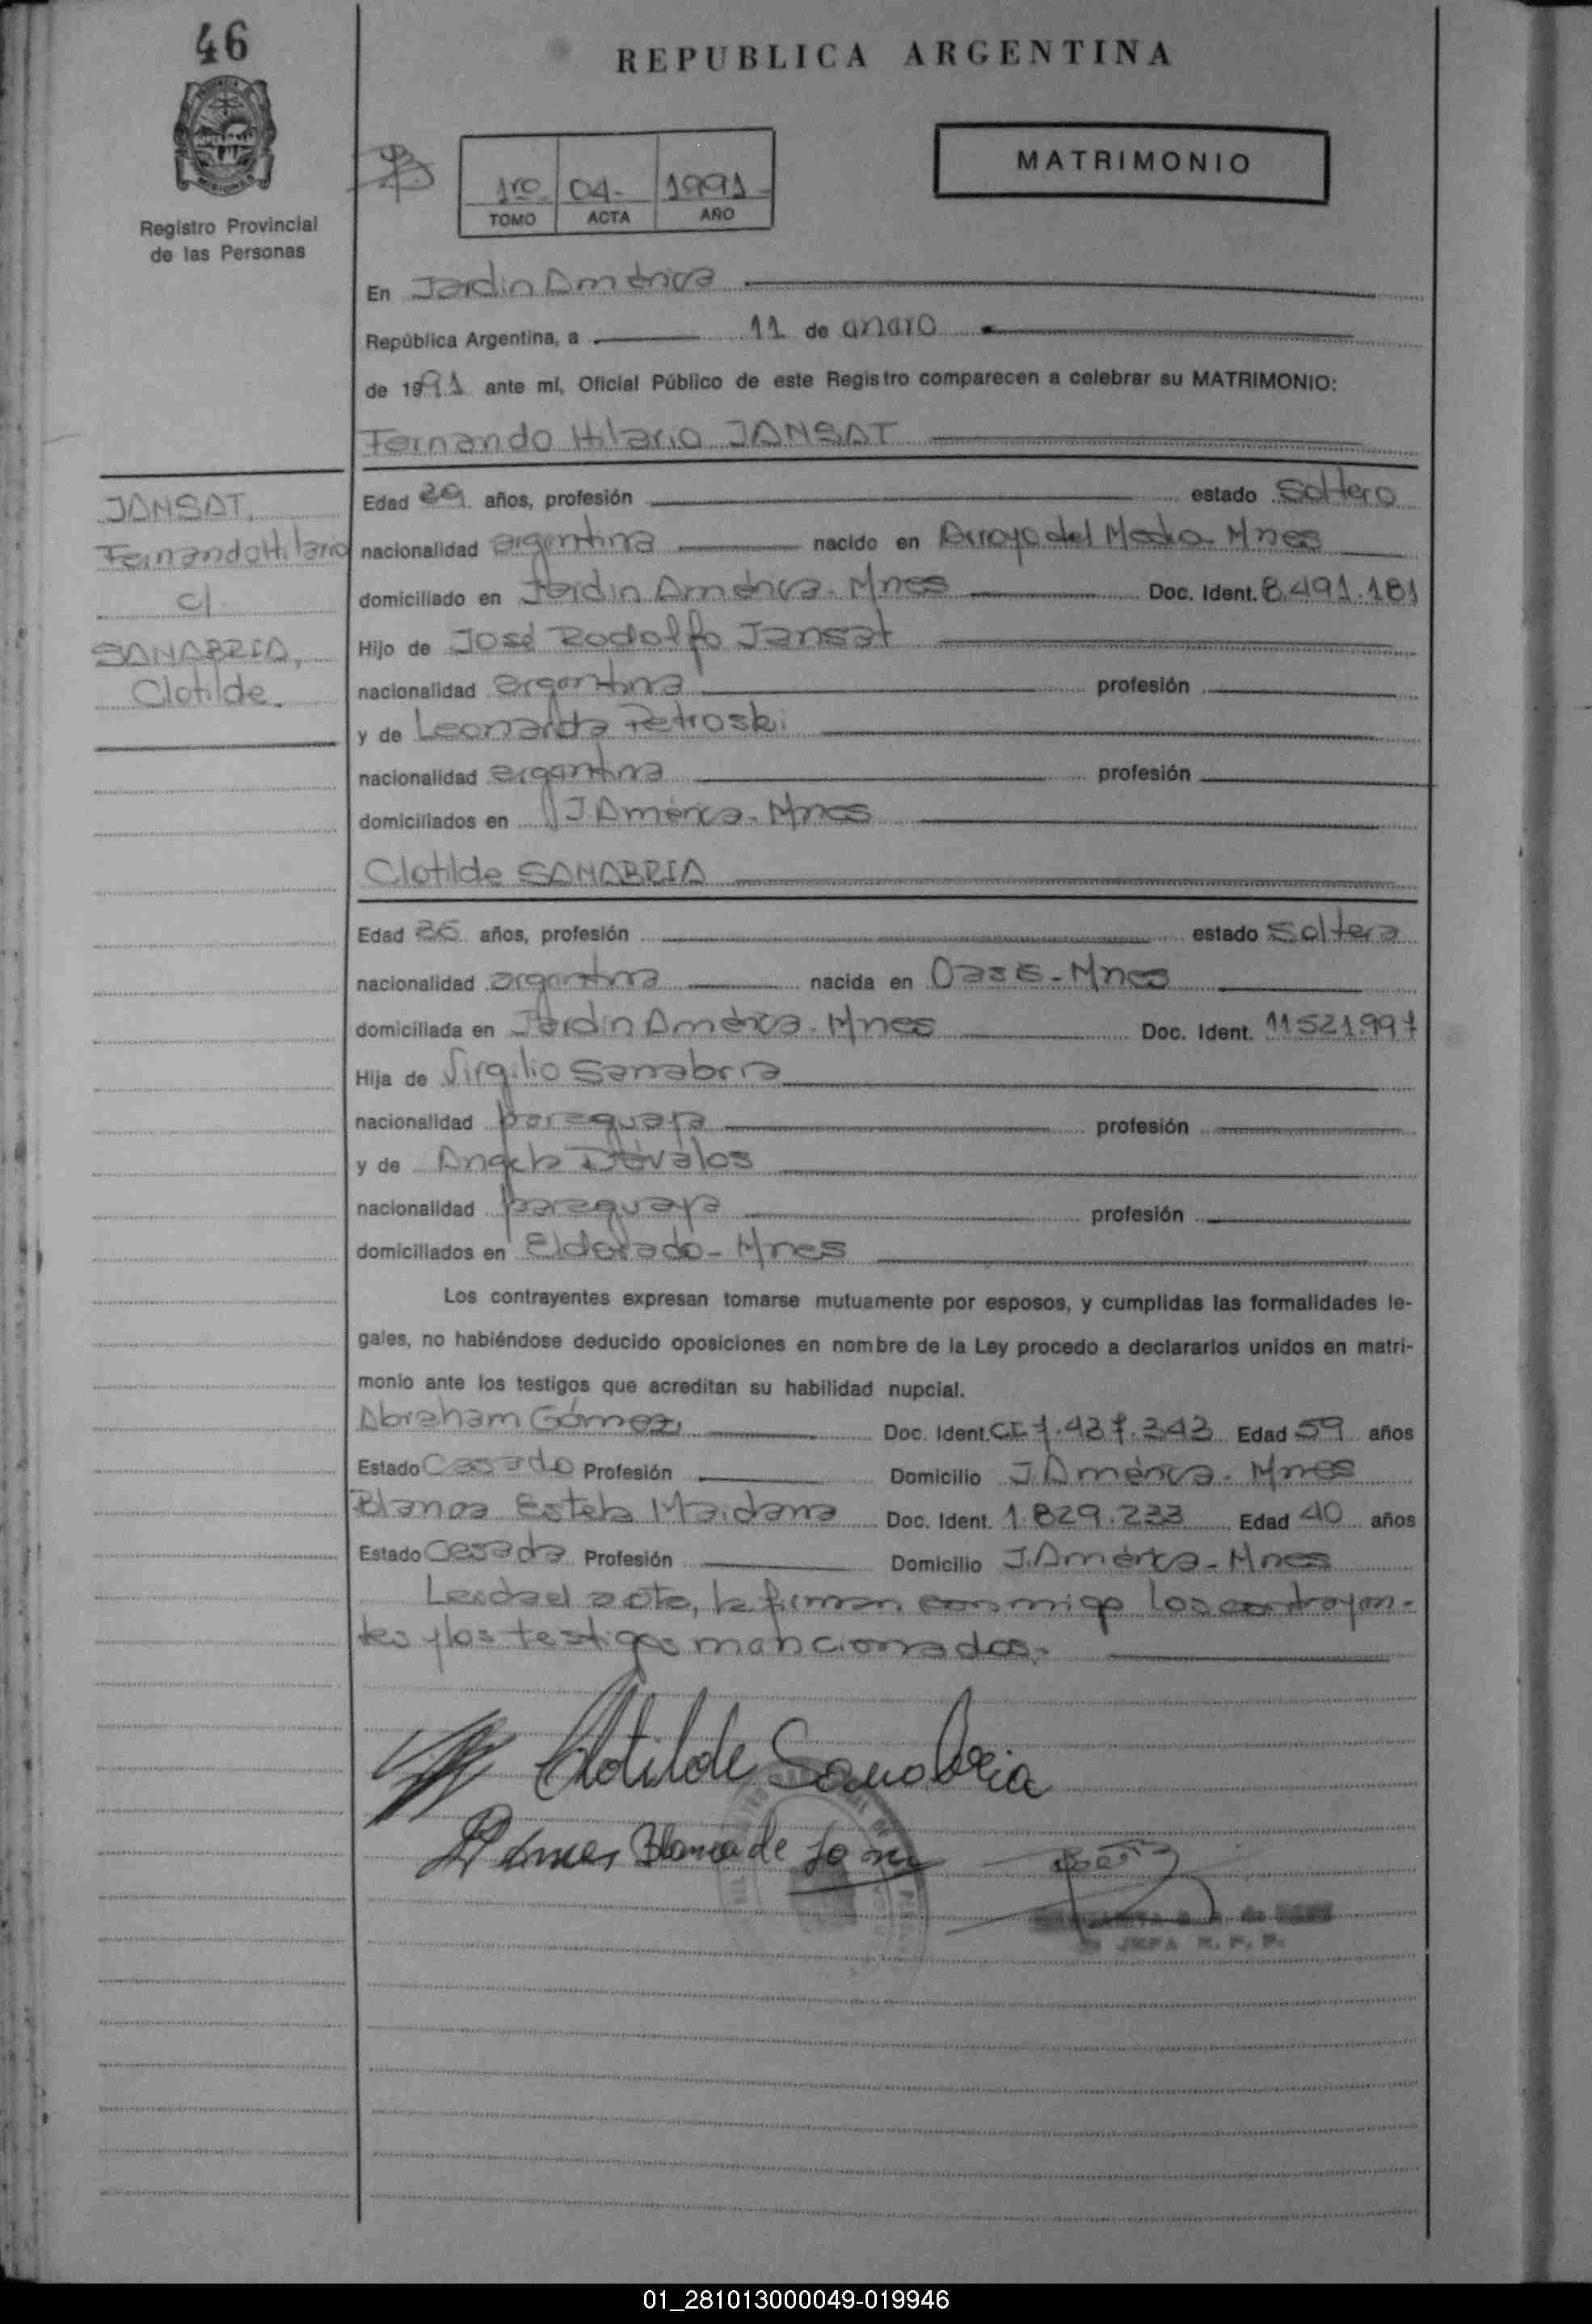 46
REPUBLICA ARGENTINA
MATRIMONIO
1ro 04- 1991
TOMO ACTA AÑO
Registro Provincial
de las Personas
En Jardin América
República Argentina, a 11 de enero
de 1991 ante mí, Oficial Público de este Registro comparecen a celebrar su MATRIMONIO:
Fernando Hilario JANSAT
JANSAT,
Fernando Hilario
c/
SANABRIA,
Clotilde.
Edad años, profesión estado soltero
nacionalidad argentina nacido en Arroyo del Medio Mnes
domiciliado en Jardin América - Mnes Doc. Ident. 8.491.181
Hijo de José Rodolfo Jansat
nacionalidad argentina profesión
y de Leonarda Petroski
nacionalidad argentina profesión
domiciliados en J. América - Mnes
Clotilde SANABRIA
Edad 36 años, profesión estado soltera
nacionalidad argentina nacida en Oasis - Mnes
domiciliada en Jardin América - Mnes Doc. Ident. 11.521.997
Hija de Virgilio Sanabria
nacionalidad paraguaya profesión
y de Angela Dávalos
nacionalidad paraguaya profesión
domiciliados en Eldorado - Mnes
Los contrayentes expresan tomarse mutuamente por esposos, y cumplidas las formalidades le-
gales, no habiéndose deducido oposiciones en nombre de la Ley procedo a declararlos unidos en matri-
monio ante los testigos que acreditan su habilidad nupcial.
Abraham Gómez, Doc. Ident. 7.437.343 Edad 59 años
Estado Casado Profesión Domicilio J. América - Mnes
Blanca Estela Maidana Doc. Ident. 1.829.233 Edad 40 años
Estado Casada Profesión Domicilio J. América - Mnes
Leida el acta, la firman conmigo los contrayen-
tes y los testigos mencionados.-
Clotilde Sanabria
Blanca de
JEFA R. P. P.
01_281013000049-019946